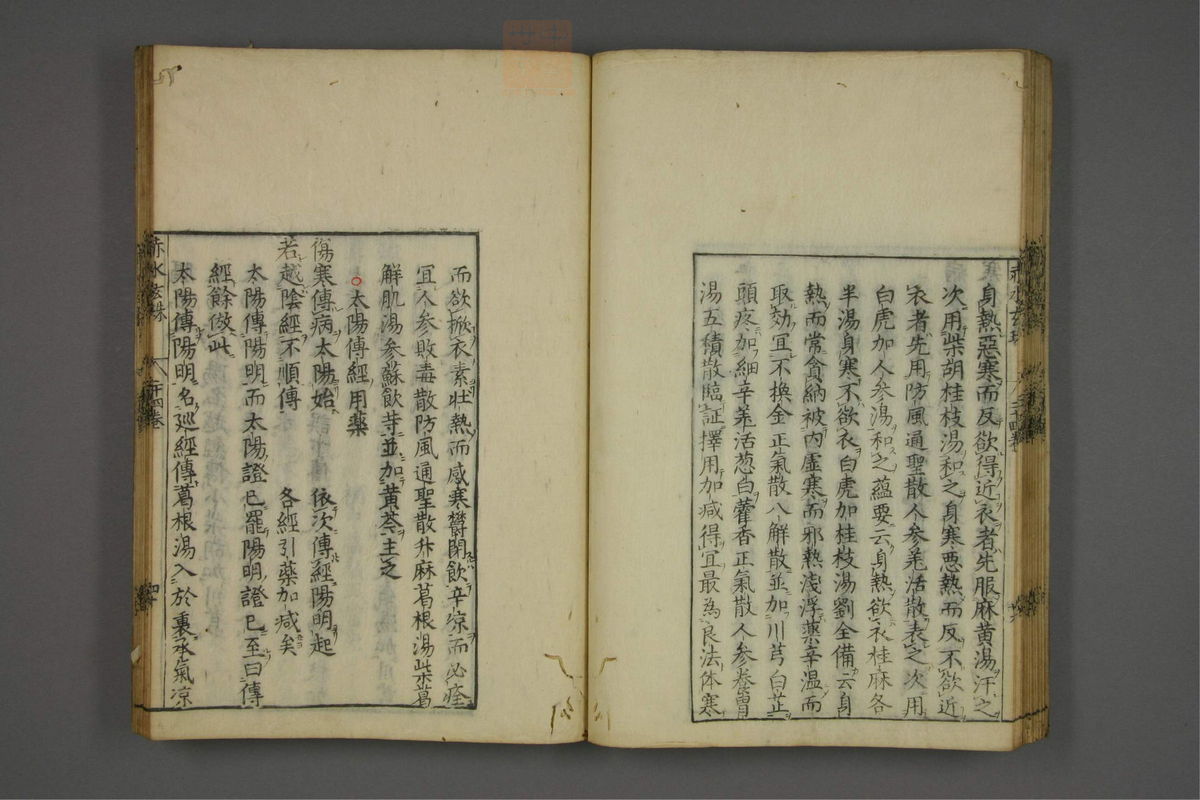 身熱惡寒而反欲得近衣者先服麻黄湯汗之
次用柴胡桂枝湯和之身寒悪熱而反不欲近
衣者先用防風通聖散人参羌活散表之次用
白虎加人参湯和之蘊要云身熱欲衣桂麻各
半湯身寒不欲衣白虎加桂枝湯劉全備云身
熱而常貪納被内虚寒而邪熱浅浮藥辛温而
取効宜不換金正氣散八解散並加川芎白芷
頭疼加細辛羌活葱白藿香正氣散人参養胃
湯五積散臨証擇用加减得宜最為良法体寒
而欲掀衣素壮熱而感寒欝閉飲辛涼而必痊
宜人参敗毒散防風通聖散升麻葛根湯柴葛
解肌湯参蘇飲等並加黄芩主之
太陽傳經用藥
傷寒傳病太陽始 依次傳經陽明起
若越陰經不順傳 各經引藥加减矣
太陽傳陽明而太陽證已罷陽明證已至曰傳
經餘倣此
太陽傳陽明名廵經傳葛根湯入於裏承氣凉
赤水玄珠 二十四卷